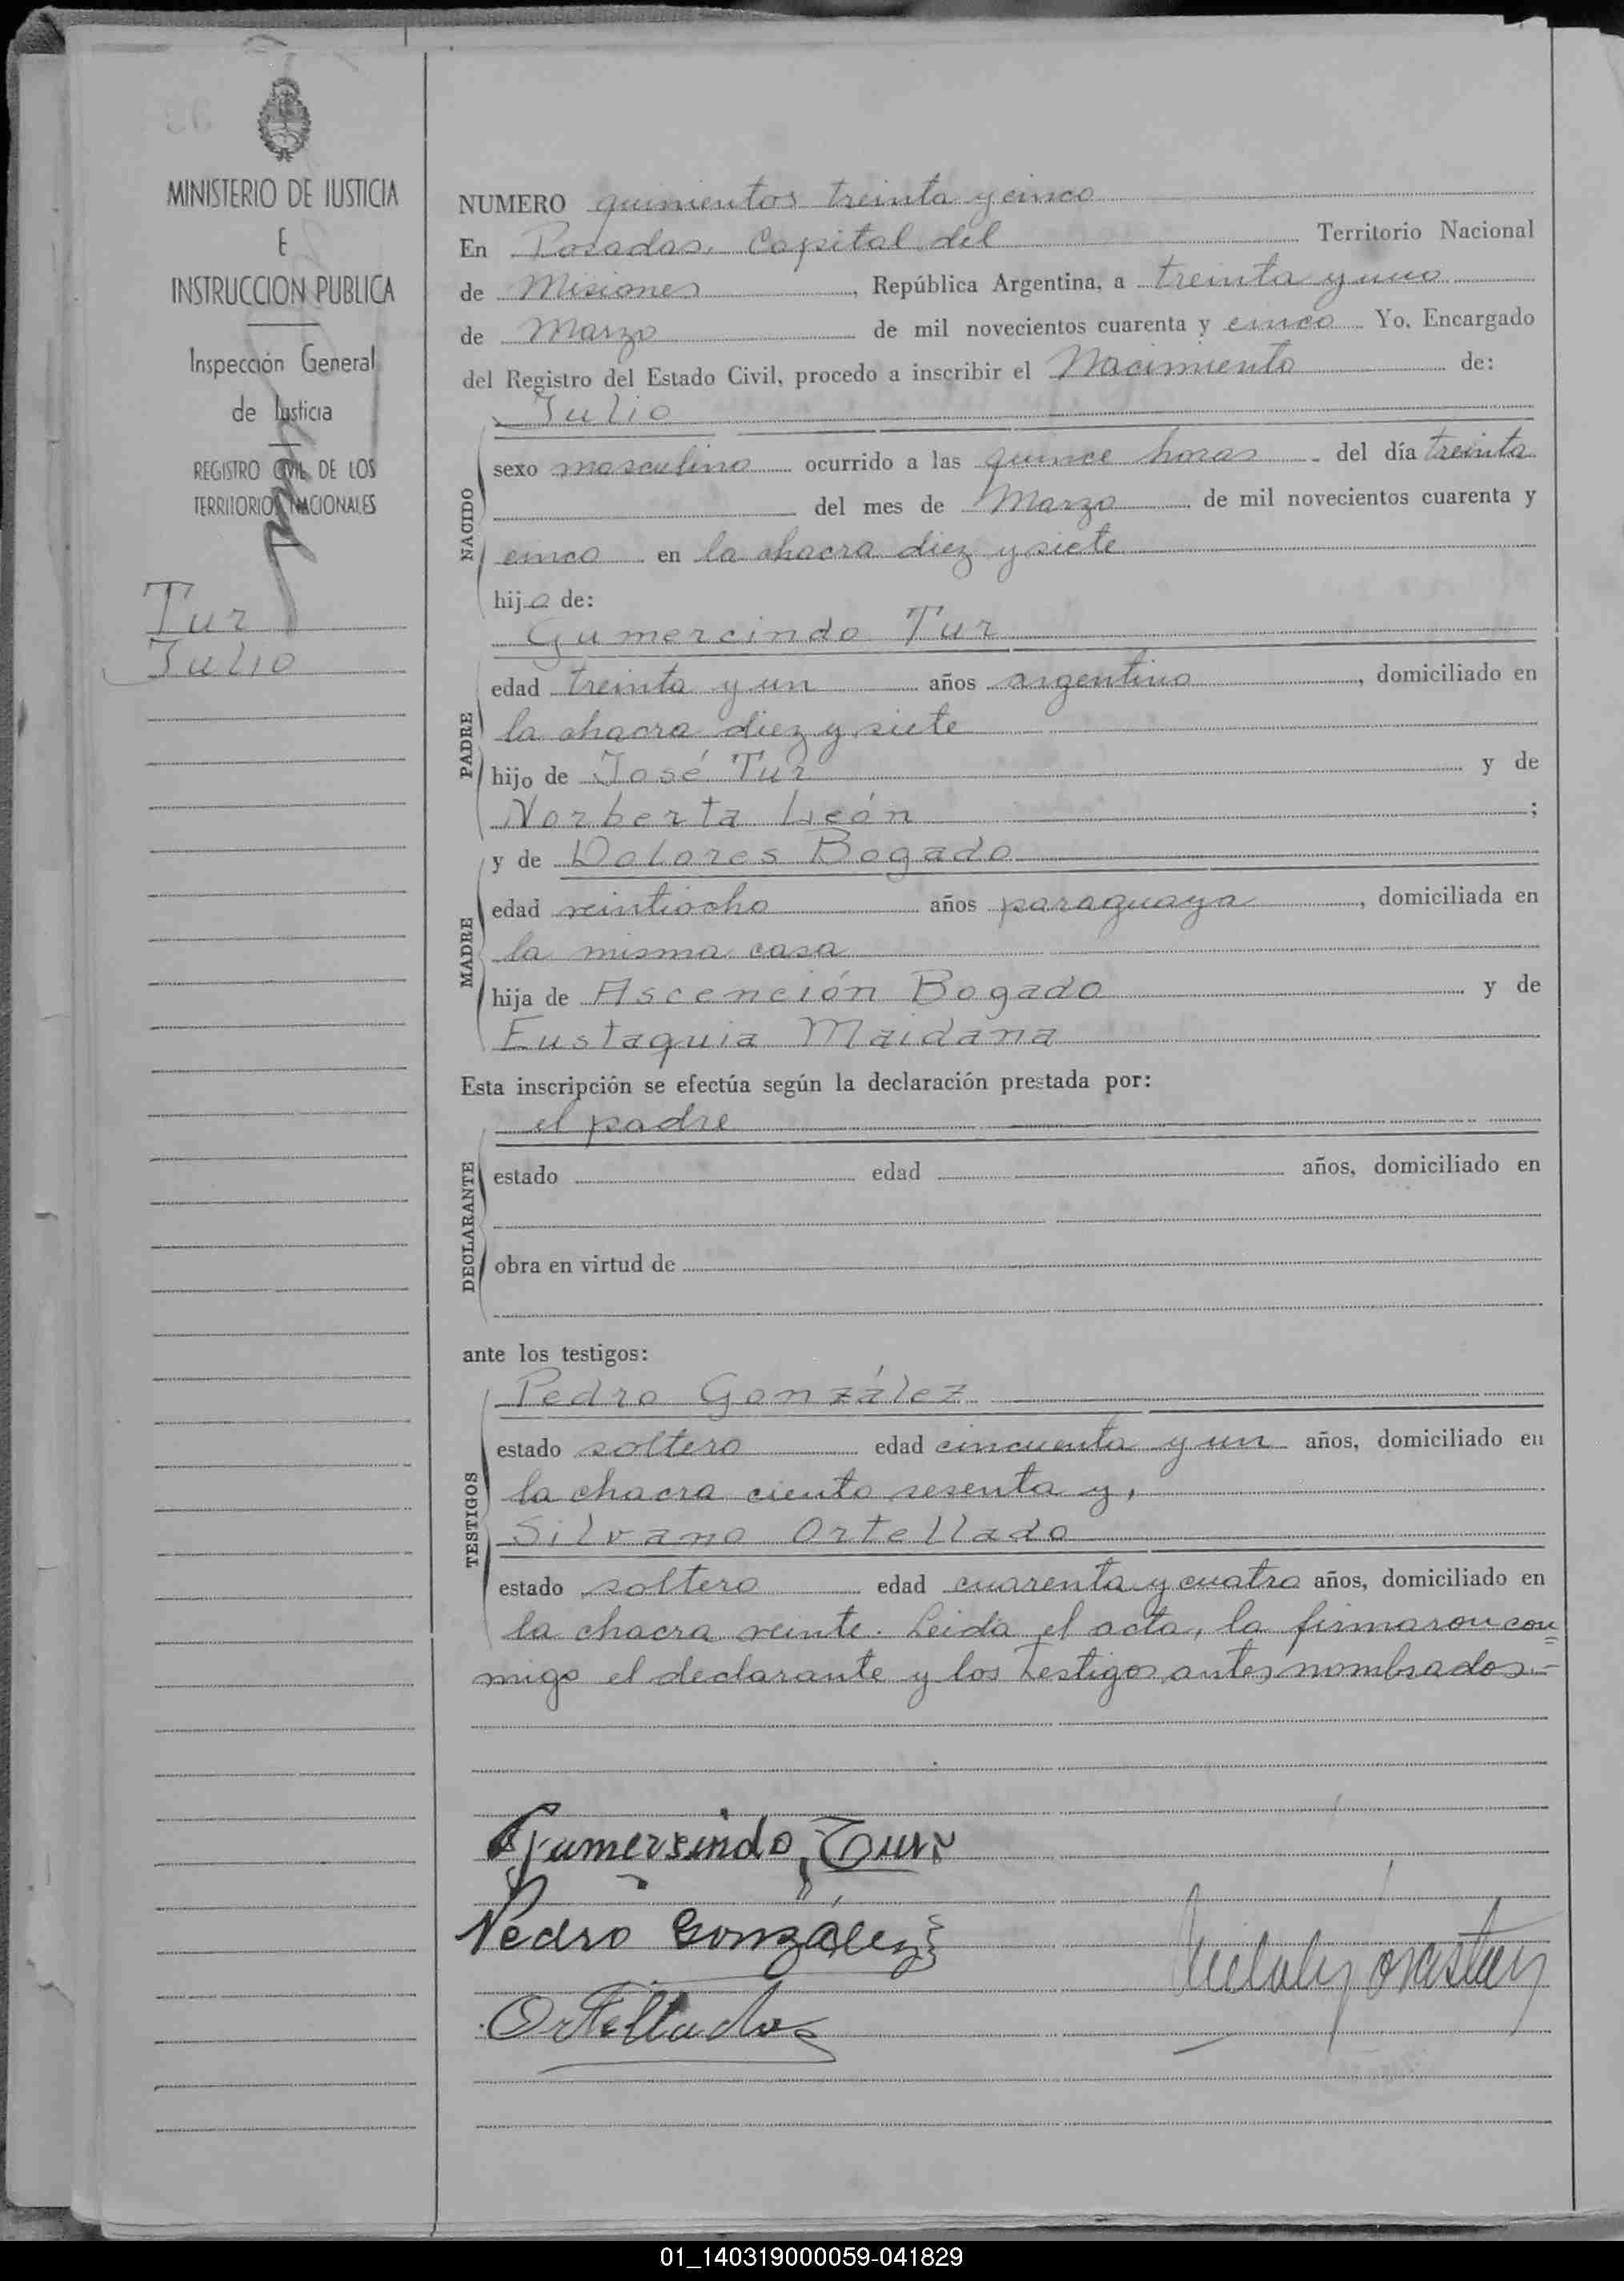 MINISTERIO DE JUSTICIA
E
INSTRUCCION PUBLICA
Inspección General
de Justicia
REGISTRO CIVIL DE LOS
TERRITORIOS NACIONALES
Tur
Julio
NUMERO quinientos treinta y cinco
En Posadas, Capital del Territorio Nacional
de Misiones, República Argentina, a treinta y uno
de Marzo de mil novecientos cuarenta y cinco Yo, Encargado
del Registro del Estado Civil, procedo a inscribir el Nacimiento de:
Julio
NACIDO
sexo masculino ocurrido a las quince horas del día treinta
del mes de Marzo de mil novecientos cuarenta y
cinco en la chacra diez y siete
hijo de:
Gumercindo Tur
PADRE
edad treinta y un años argentino, domiciliado en
la chacra diez y siete
hijo de José Tur y de
Norberta León;
MADRE
y de Dolores Bogado
edad veintiocho años paraguaya, domiciliada en
la misma casa
hija de Ascención Bogado y de
Eustaquia Maidana
Esta inscripción se efectúa según la declaración prestada por:
el padre
DECLARANTE
estado edad años, domiciliado en
obra en virtud de
ante los testigos:
Pedro González
TESTIGOS
estado soltero edad cincuenta y un años, domiciliado en
la chacra ciento sesenta y,
Silvano Ortellado
estado soltero edad cuarenta y cuatro años, domiciliado en
la chacra veinte. Leida el acta, la firmaron con=
migo el declarante y los testigos antes nombrados.-
Gumersindo Tur
Pedro González
Ortellado
01_140319000059-041829